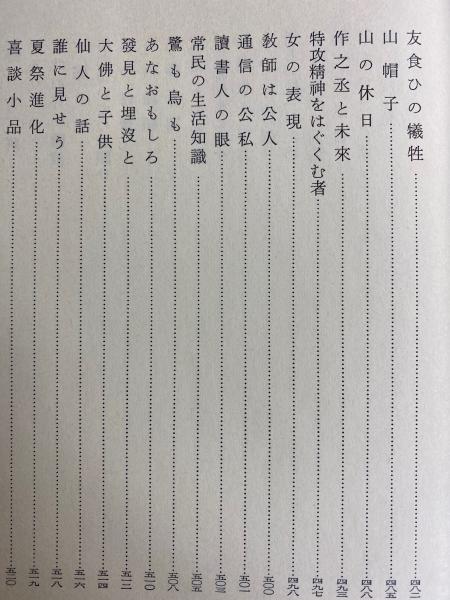 友食ひの犠牲 四八二
山帽子 四八五
山の休日 四八八
作之丞と未來 四九三
特攻精神をはぐくむ者 四九七
女の表現 四九八
教師は公人 五〇〇
通信の公私 五〇一
讀書人の眼 五〇三
常民の生活知識 五〇五
鷺も烏も 五〇八
あなおもしろ 五一〇
發見と埋沒と 五一二
大佛と子供 五一四
仙人の話 五一六
誰に見せう 五一八
夏祭進化 五一九
喜談小品 五二〇